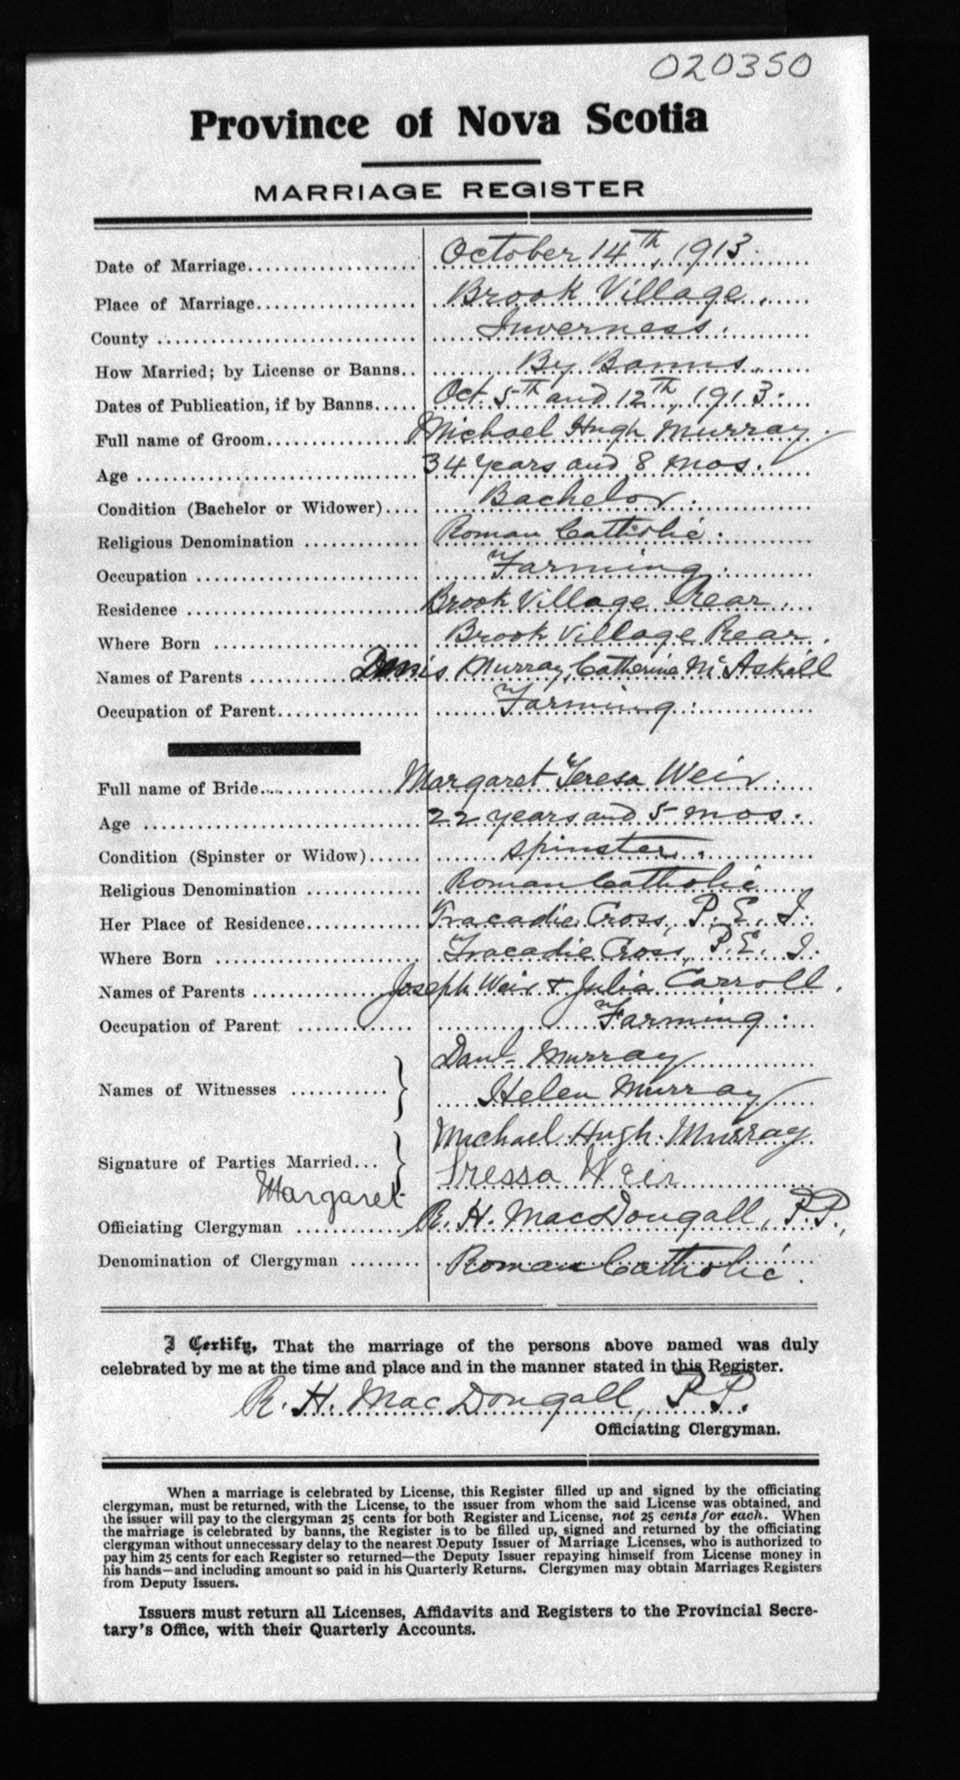 020350
Province of Nova Scotia
MARRIAGE REGISTER
Date of Marriage.................... October 14th, 1913.
Place of Marriage.................. Brook Village.
County ............................. Inverness.
How Married; by License or Banns.. By Banns.
Dates of Publication, if by Banns..... Oct. 5th and 12th, 1913.
Full name of Groom................ Michael Hugh Murray.
Age ................................ 34 years and 8 mos.
Condition (Bachelor or Widower).... Bachelor.
Religious Denomination ............ Roman Catholic.
Occupation ......................... Farming.
Residence .......................... Brook Village Rear.
Where Born ........................ Brook Village Rear.
Names of Parents .......... Denis Murray, Catherine McAskill
Occupation of Parent................ Farming.
Full name of Bride.................. Margaret Teresa Weir.
Age ................................ 22 years and 5 mos.
Condition (Spinster or Widow)...... spinster.
Religious Denomination ............ Roman Catholic
Her Place of Residence............. Tracadie Cross, P. E. I.
Where Born ........................ Tracadie Cross, P. E. I.
Names of Parents ............... Joseph Weir & Julia Carroll.
Occupation of Parent ............ Farming.
Danl. Murray
Names of Witnesses ...........
Helen Murray
Michael Hugh Murray
Signature of Parties Married...
Margaret Tressa Weir
Officiating Clergyman ............ R. H. MacDougall, P.P.,
Denomination of Clergyman ........ Roman Catholic.
I Certify, That the marriage of the persons above named was duly
celebrated by me at the time and place and in the manner stated in this Register.
R. H. MacDougall, P. P.
Officiating Clergyman.
When a marriage is celebrated by License, this Register filled up and signed by the officiating
clergyman, must be returned, with the License, to the issuer from whom the said License was obtained, and
the issuer will pay to the clergyman 25 cents for both Register and License, not 25 cents for each. When
the marriage is celebrated by banns, the Register is to be filled up, signed and returned by the officiating
clergyman without unnecessary delay to the nearest Deputy Issuer of Marriage Licenses, who is authorized to
pay him 25 cents for each Register so returned—the Deputy Issuer repaying himself from License money in
his hands—and including amount so paid in his Quarterly Returns. Clergymen may obtain Marriages Registers
from Deputy Issuers.
Issuers must return all Licenses, Affidavits and Registers to the Provincial Secre-
tary's Office, with their Quarterly Accounts.